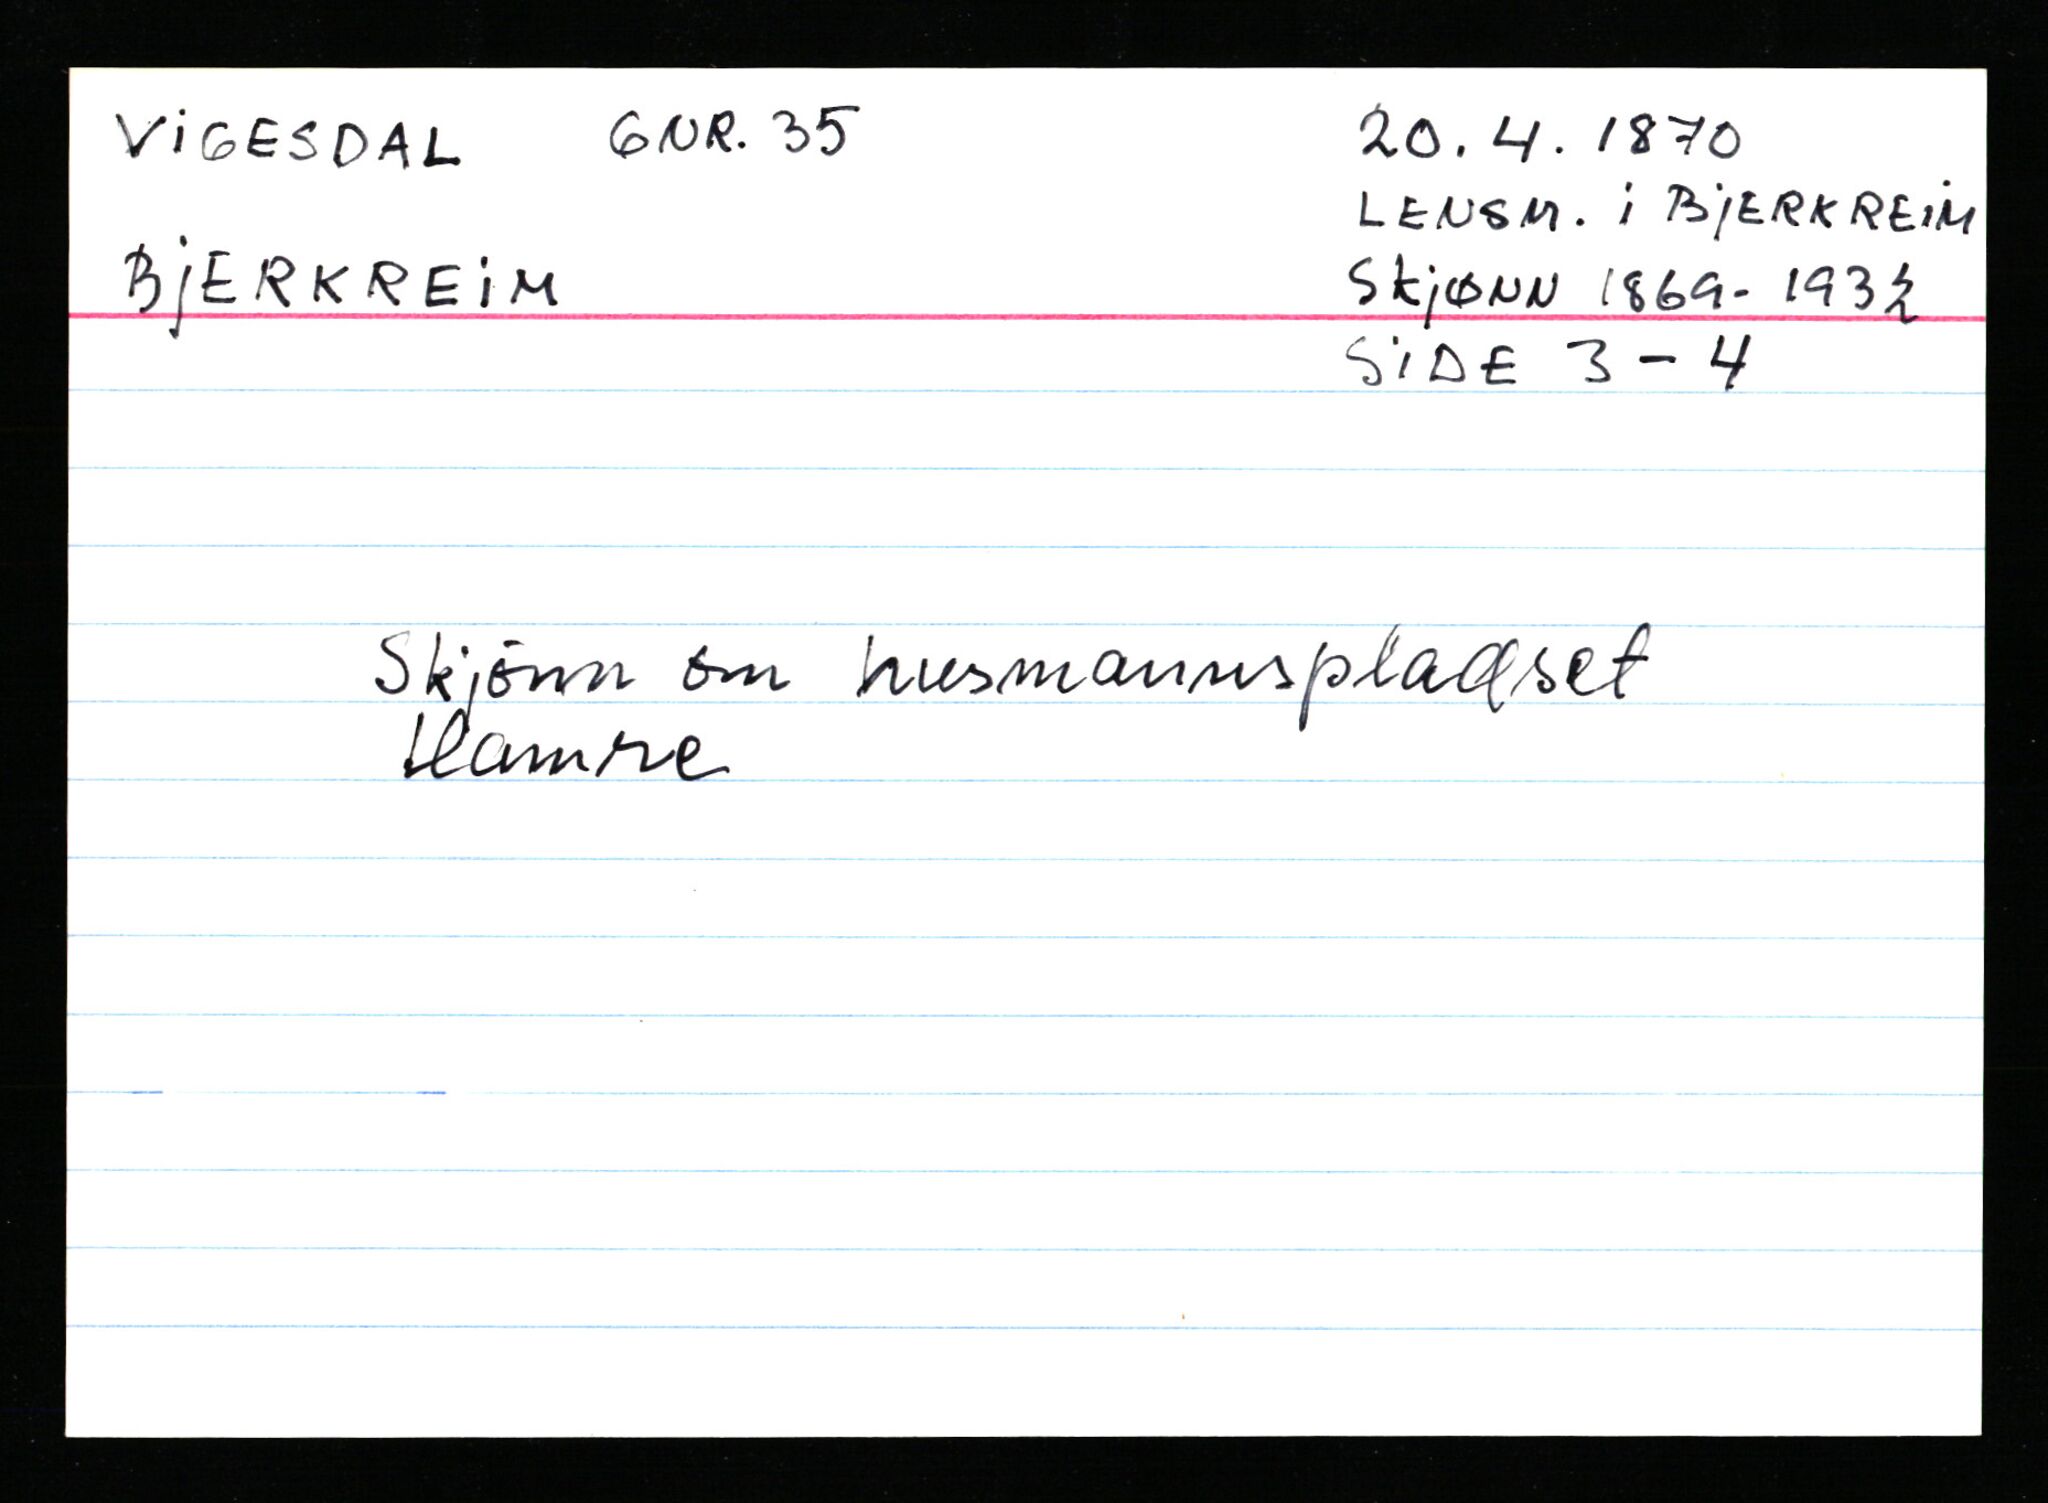 VIGESDAL GNR. 35 20. 4. 1870
LENSM. i BJERKREIM
BJERKREIM SKJØNN 1869-1932
SIDE 3-4
Skjønn om husmannspladset
Hamre